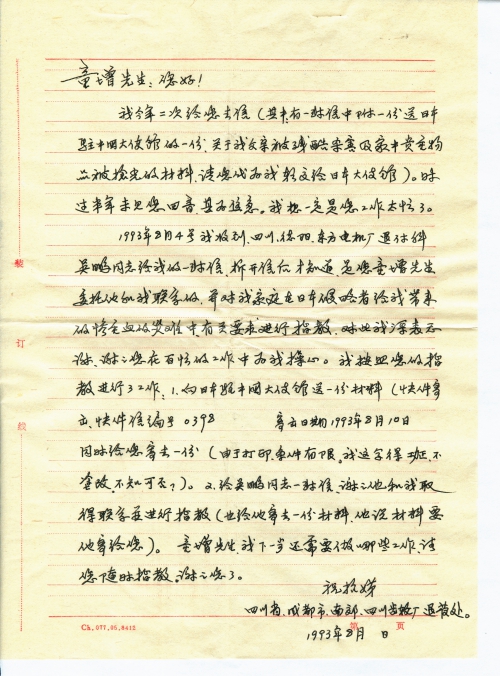 童增先生：您好！
我今年二次给您去信（其中有一封信中附一份送日本
驻中国大使馆的一份，关于我父亲被残酷杀害及家中贵重物
品被抢光的材料，请您代为我转交给日本大使馆）。时
过半年未见您回音，甚为挂意。我想一定是您工作太忙了。
1993年8月4号我收到，四川、德阳、东方电机厂退休科
吴鹏同志给我的一封信，拆开信后才知道是您童增先生
委托他和我联系的，并对我家庭在日本侵略者给我带来
的惨重血的灾难中有关要求进行指教，对此我深表感
谢，谢谢您在百忙的工作中为我操心。我按照您的指
教进行了工作：1.向日本驻中国大使馆送一份材料（快件寄
去，快件信编号0398 寄去日期1993年8月10日
同时给您寄去一份（由于打印条件有限。我这字得工正，不
涂改，不知可否？）。2.给吴鹏同志一封信，谢谢他和我取
得联系并进行指教（也给他寄去一份材料，他说材料要
他寄给您）。童增先生，我下一步还需要做哪些工作，请
您随时指教，谢谢您了。
祝
四川省、成都市、南郊、四川齿轮厂退管处。
1993年8月 日
装
订
线
Ch.077.05.8412
第 页